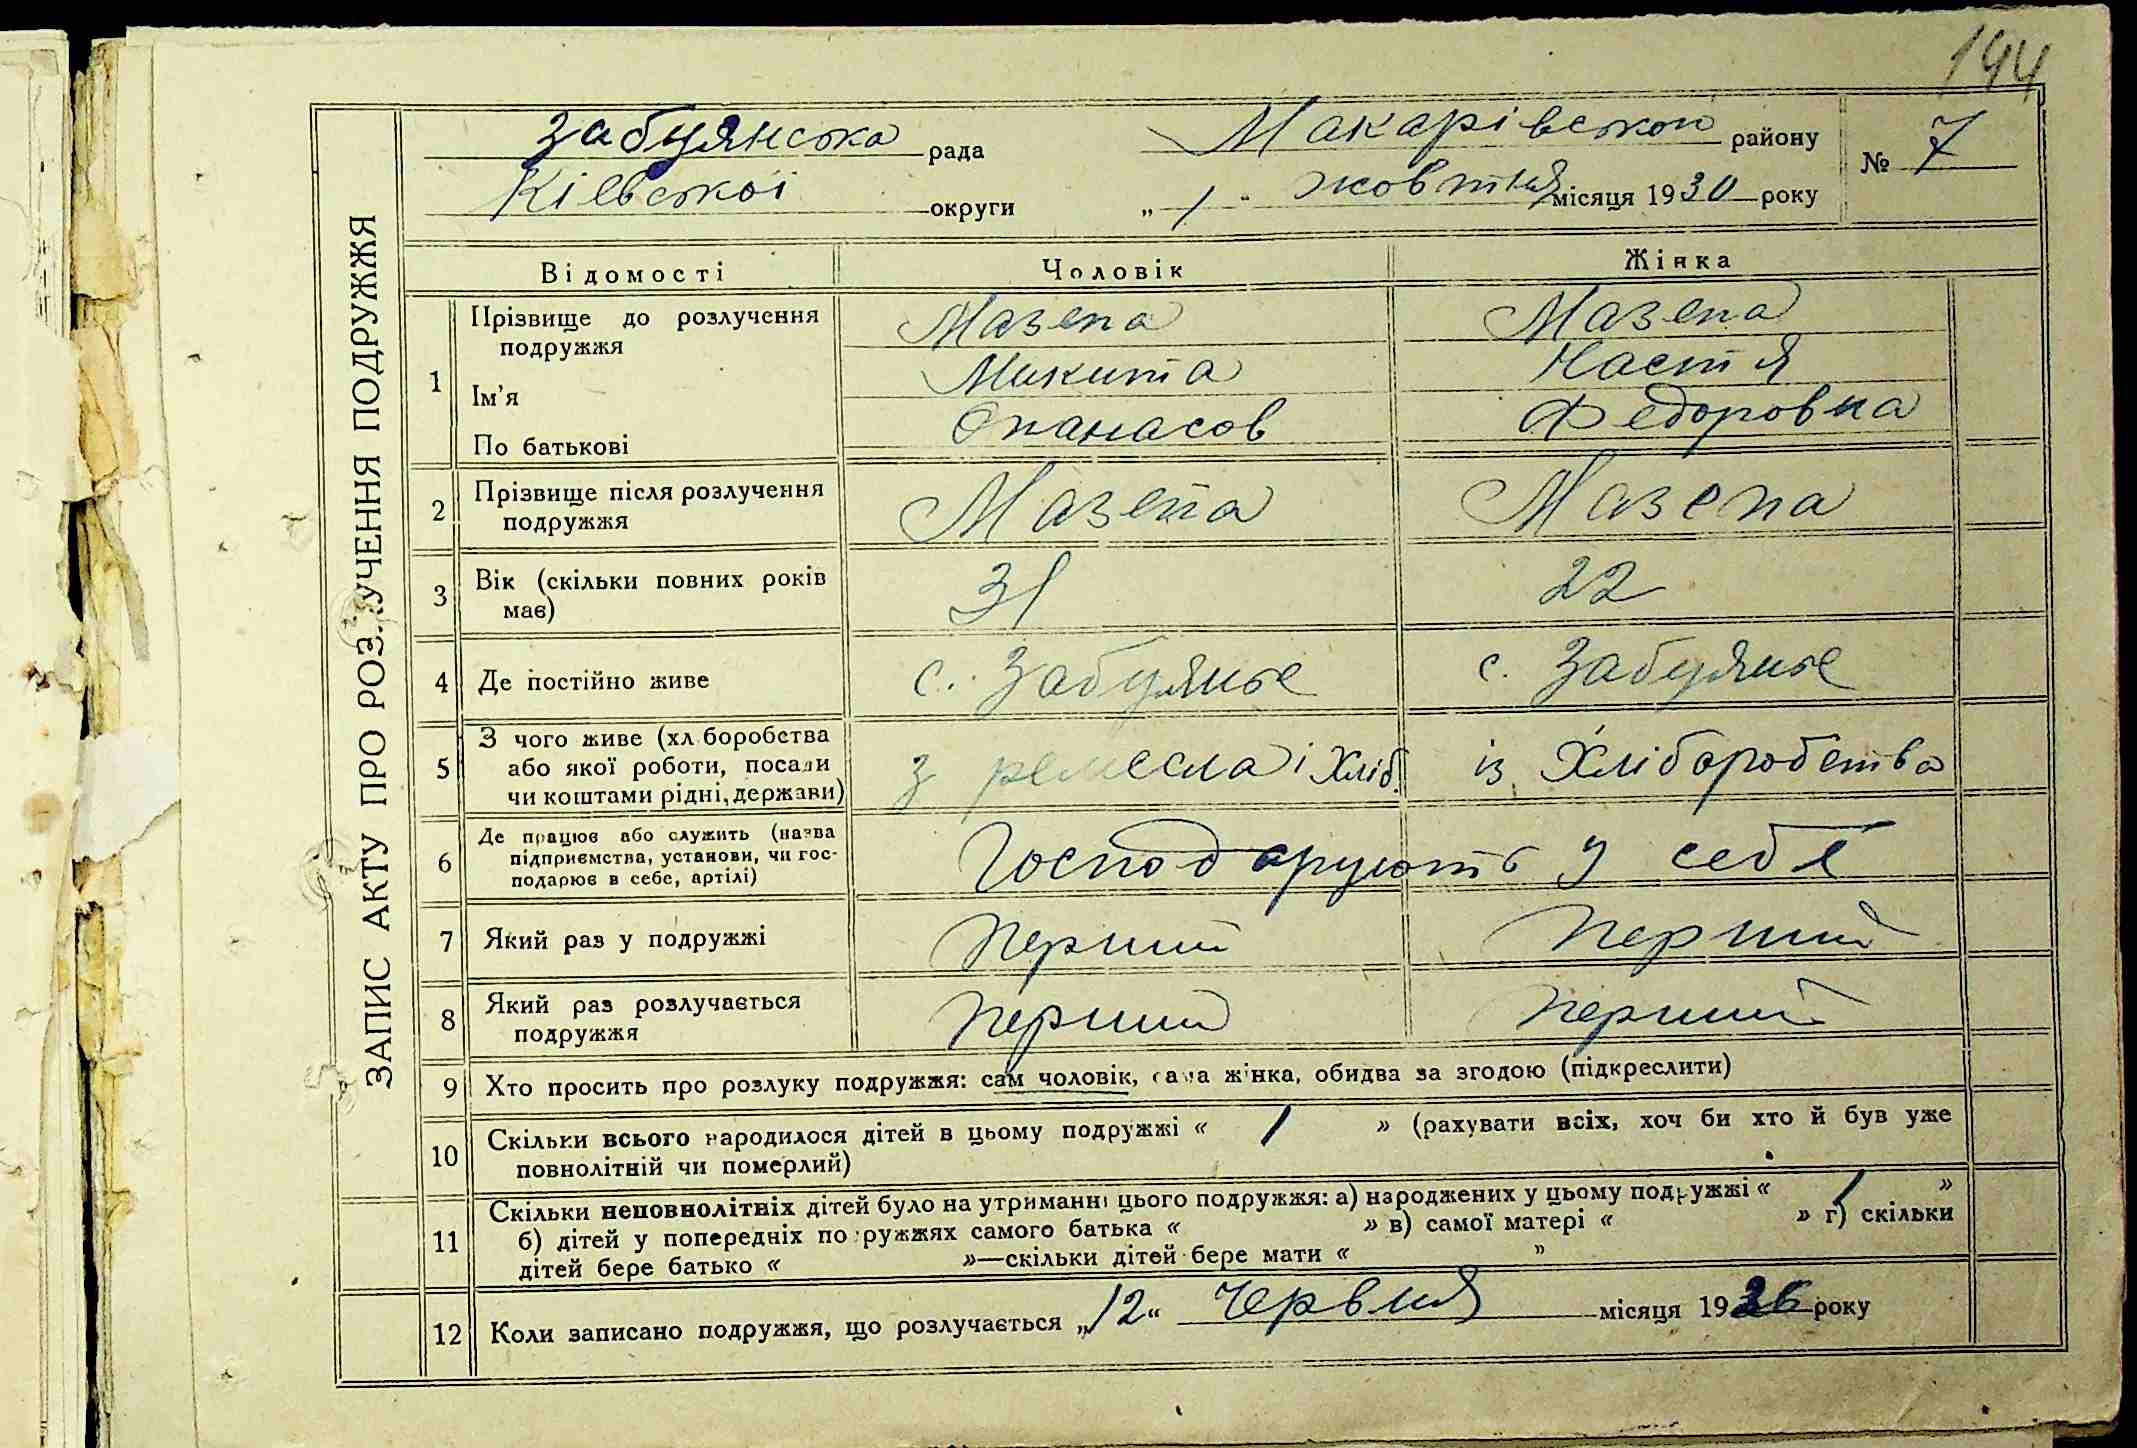 194
ЗАПИС АКТУ ПРО РОЗЛУЧЕННЯ ПОДРУЖЖЯ
Забуянська рада Макарівського району № 7
Кіівськоі округи „ 1 “ жовтня місяця 1930 року
Відомості Чоловік Жінка
1 Прізвище до розлучення подружжя Мазепа Мазепа
Ім'я Микита Настя
По батькові Опанасов Федоровна
2 Прізвище після розлучення подружжя Мазепа Мазепа
3 Вік (скільки повних років має) 31 22
4 Де постійно живе с. Забуянье с. Забуянье
5 З чого живе (хліборобства або якої роботи, посади чи коштами рідні, держави) з ремесла і Хліб. із Хліборобства
6 Де працює або служить (назва підприємства, установи, чи господарює в себе, артілі) Господарують у себе
7 Який раз у подружжі Перший Перший
8 Який раз розлучається подружжя Перший Перший
9 Хто просить про розлуку подружжя: сам чоловік, сама жінка, обидва за згодою (підкреслити)
10 Скільки всього народилося дітей в цьому подружжі « 1 » (рахувати всіх, хоч би хто й був уже
повнолітній чи померлий)
11 Скільки неповнолітніх дітей було на утриманні цього подружжя: а) народжених у цьому подружжі « 1 »
б) дітей у попередніх подружжях самого батька « » в) самої матері « » г) скільки
дітей бере батько « »—скільки дітей бере мати « »
12 Коли записано подружжя, що розлучається „12“ червня місяця 19 року